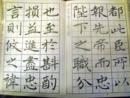 都此臣所以
報先帝而忠
陛下之職分
也至於斟酌
損益進盡忠
言則攸之禕